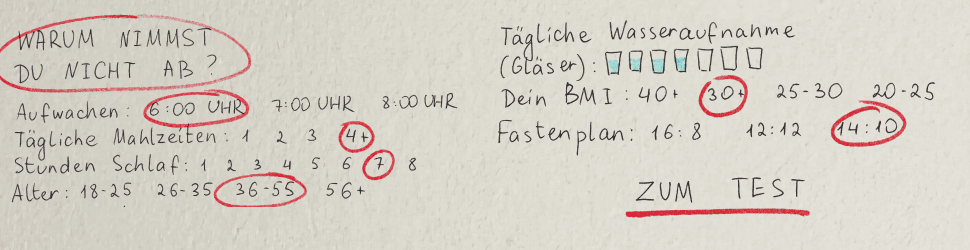 WARUM NIMMST
DU NICHT AB?
Aufwachen: 6:00 UHR 7:00 UHR 8:00 UHR
Tägliche Mahlzeiten: 1 2 3 4+
Stunden Schlaf: 1 2 3 4 5 6 7 8
Alter: 18-25 26-35 36-55 56+
Tägliche Wasseraufnahme
(Gläser):
Dein BMI: 40+ 30+ 25-30 20-25
Fastenplan: 16:8 12:12 14:10
ZUM TEST